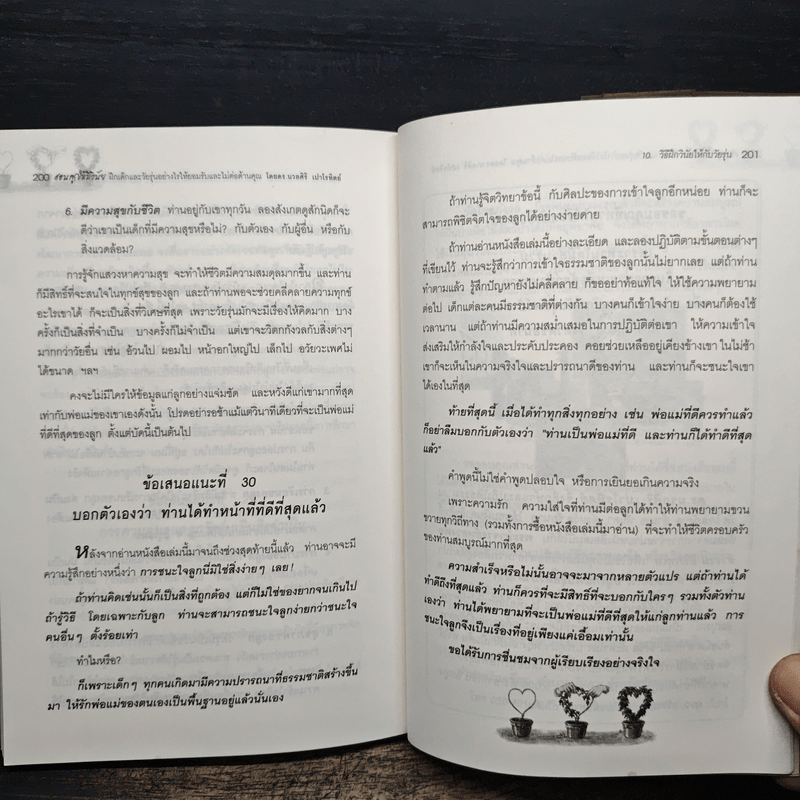 200 สอนลูกให้มีวินัย ฝึกเด็กและวัยรุ่นอย่างไรให้ยอมรับและไม่ต่อต้านคุณ โดยดร.นวลศิริ เปาโรหิตย์
6. มีความสุขกับชีวิต ท่านอยู่กับเขาทุกวัน ลองสังเกตดูสักนิดก็จะ
ดีว่าเขาเป็นเด็กที่มีความสุขหรือไม่? กับตัวเอง กับผู้อื่น หรือกับ
สิ่งแวดล้อม?
การรู้จักแสวงหาความสุข จะทำให้ชีวิตมีความสมดุลมากขึ้น และท่าน
ก็มีสิทธิ์ที่จะสนใจในทุกข์สุขของลูก และถ้าท่านพอจะช่วยคลี่คลายความทุกข์
อะไรเขาได้ ก็จะเป็นสิ่งที่วิเศษที่สุด เพราะวัยรุ่นมักจะมีเรื่องให้คิดมาก บาง
ครั้งก็เป็นสิ่งที่จำเป็น บางครั้งก็ไม่จำเป็น แต่เขาจะวิตกกังวลกับสิ่งต่างๆ
มากกว่าวัยอื่น เช่น อ้วนไป ผอมไป หน้าอกใหญ่ไป เล็กไป อวัยวะเพศไม่
ได้ขนาด ฯลฯ
คงจะไม่มีใครให้ข้อมูลแก่ลูกอย่างแจ่มชัด และหวังดีแก่เขามากที่สุด
เท่ากับพ่อแม่ของเขาเองดังนั้น โปรดอย่ารอช้าแม้แต่วินาทีเดียวที่จะเป็นพ่อแม่
ที่ดีที่สุดของลูก ตั้งแต่บัดนี้เป็นต้นไป
ข้อเสนอแนะที่ 30
บอกตัวเองว่า ท่านได้ทำหน้าที่ที่ดีที่สุดแล้ว
หลังจากอ่านหนังสือเล่มนี้มาจนถึงช่วงสุดท้ายนี้แล้ว ท่านอาจจะมี
ความรู้สึกอย่างหนึ่งว่า การชนะใจลูกนี่มิใช่สิ่งง่ายๆ เลย!
ถ้าท่านคิดเช่นนั้นก็เป็นสิ่งที่ถูกต้อง แต่ก็ไม่ใช่ของยากจนเกินไป
ถ้ารู้วิธี โดยเฉพาะกับลูก ท่านจะสามารถชนะใจลูกง่ายกว่าชนะใจ
คนอื่นๆ ตั้งร้อยเท่า
ทำไมหรือ?
ก็เพราะเด็กๆ ทุกคนเกิดมามีความปรารถนาที่ธรรมชาติสร้างขึ้น
มา ให้รักพ่อแม่ของตนเองเป็นพื้นฐานอยู่แล้วนั่นเอง
10. วิธีฝึกวินัยให้กับวัยรุ่น 201
ถ้าท่านรู้จิตวิทยาข้อนี้ กับศิลปะของการเข้าใจลูกอีกหน่อย ท่านก็จะ
สามารถพิชิตจิตใจของลูกได้อย่างง่ายดาย
ถ้าท่านอ่านหนังสือเล่มนี้อย่างละเอียด และลองปฏิบัติตามขั้นตอนต่างๆ
ที่เขียนไว้ ท่านจะรู้สึกว่าการเข้าใจธรรมชาติของลูกนั้นไม่ยากเลย แต่ถ้าท่าน
ทำตามแล้ว รู้สึกปัญหายังไม่คลี่คลาย ก็ขออย่าท้อแท้ใจ ให้ใช้ความพยายาม
ต่อไป เด็กแต่ละคนมีธรรมชาติที่ต่างกัน บางคนก็เข้าใจง่าย บางคนก็ต้องใช้
เวลานาน แต่ถ้าท่านมีความสม่ำเสมอในการปฏิบัติต่อเขา ให้ความเข้าใจ
ส่งเสริมให้กำลังใจและประคับประคอง คอยช่วยเหลืออยู่เคียงข้างเขา ในไม่ช้า
เขาก็จะเห็นในความจริงใจและปรารถนาดีของท่าน และท่านก็จะชนะใจเขา
ได้เองในที่สุด
ท้ายที่สุดนี้ เมื่อได้ทำทุกสิ่งทุกอย่าง เช่น พ่อแม่ที่ดีควรทำแล้ว
ก็อย่าลืมบอกกับตัวเองว่า "ท่านเป็นพ่อแม่ที่ดี และท่านก็ได้ทำดีที่สุด
แล้ว"
คำพูดนี้ไม่ใช่คำพูดปลอบใจ หรือการเยินยอเกินความจริง
เพราะความรัก ความใส่ใจที่ท่านมีต่อลูกได้ทำให้ท่านพยายามขวน
ขวายทุกวิถีทาง (รวมทั้งการซื้อหนังสือเล่มนี้มาอ่าน) ที่จะทำให้ชีวิตครอบครัว
ของท่านสมบูรณ์มากที่สุด
ความสำเร็จหรือไม่นั้นอาจจะมาจากหลายตัวแปร แต่ถ้าท่านได้
ทำดีถึงที่สุดแล้ว ท่านก็ควรที่จะมีสิทธิ์ที่จะบอกกับใครๆ รวมทั้งตัวท่าน
เองว่า ท่านได้พยายามที่จะเป็นพ่อแม่ที่ดีที่สุดให้แก่ลูกท่านแล้ว การ
ชนะใจลูกจึงเป็นเรื่องที่อยู่เพียงแค่เอื้อมเท่านั้น
ขอได้รับการชื่นชมจากผู้เรียบเรียงอย่างจริงใจ